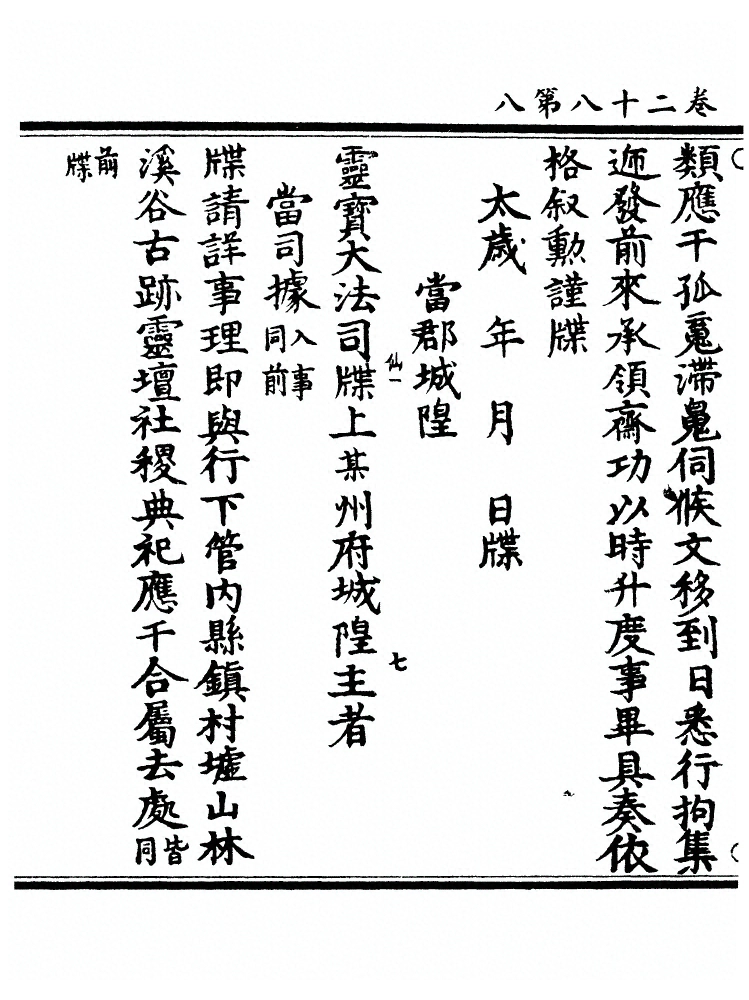 卷二十八第八
類應干孤䰟滯鬼伺候文移到日悉行拘集
遞發前來承領齋功以時升度事畢具奏依
格叙勲謹牒
太歲 年 月 日牒
當郡城隍
靈寶大法司牒上某州府城隍主者
仙一
七
當司據入事同前
牒請詳事理即與行下管内縣鎮村墟山林
溪谷古跡靈壇社稷典祀應干合屬去處皆同
前牒